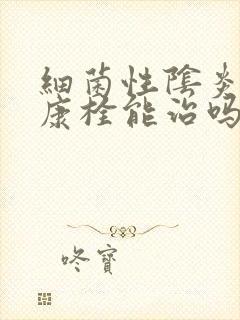 細菌性陰炎
康栓能治吗
咚寶